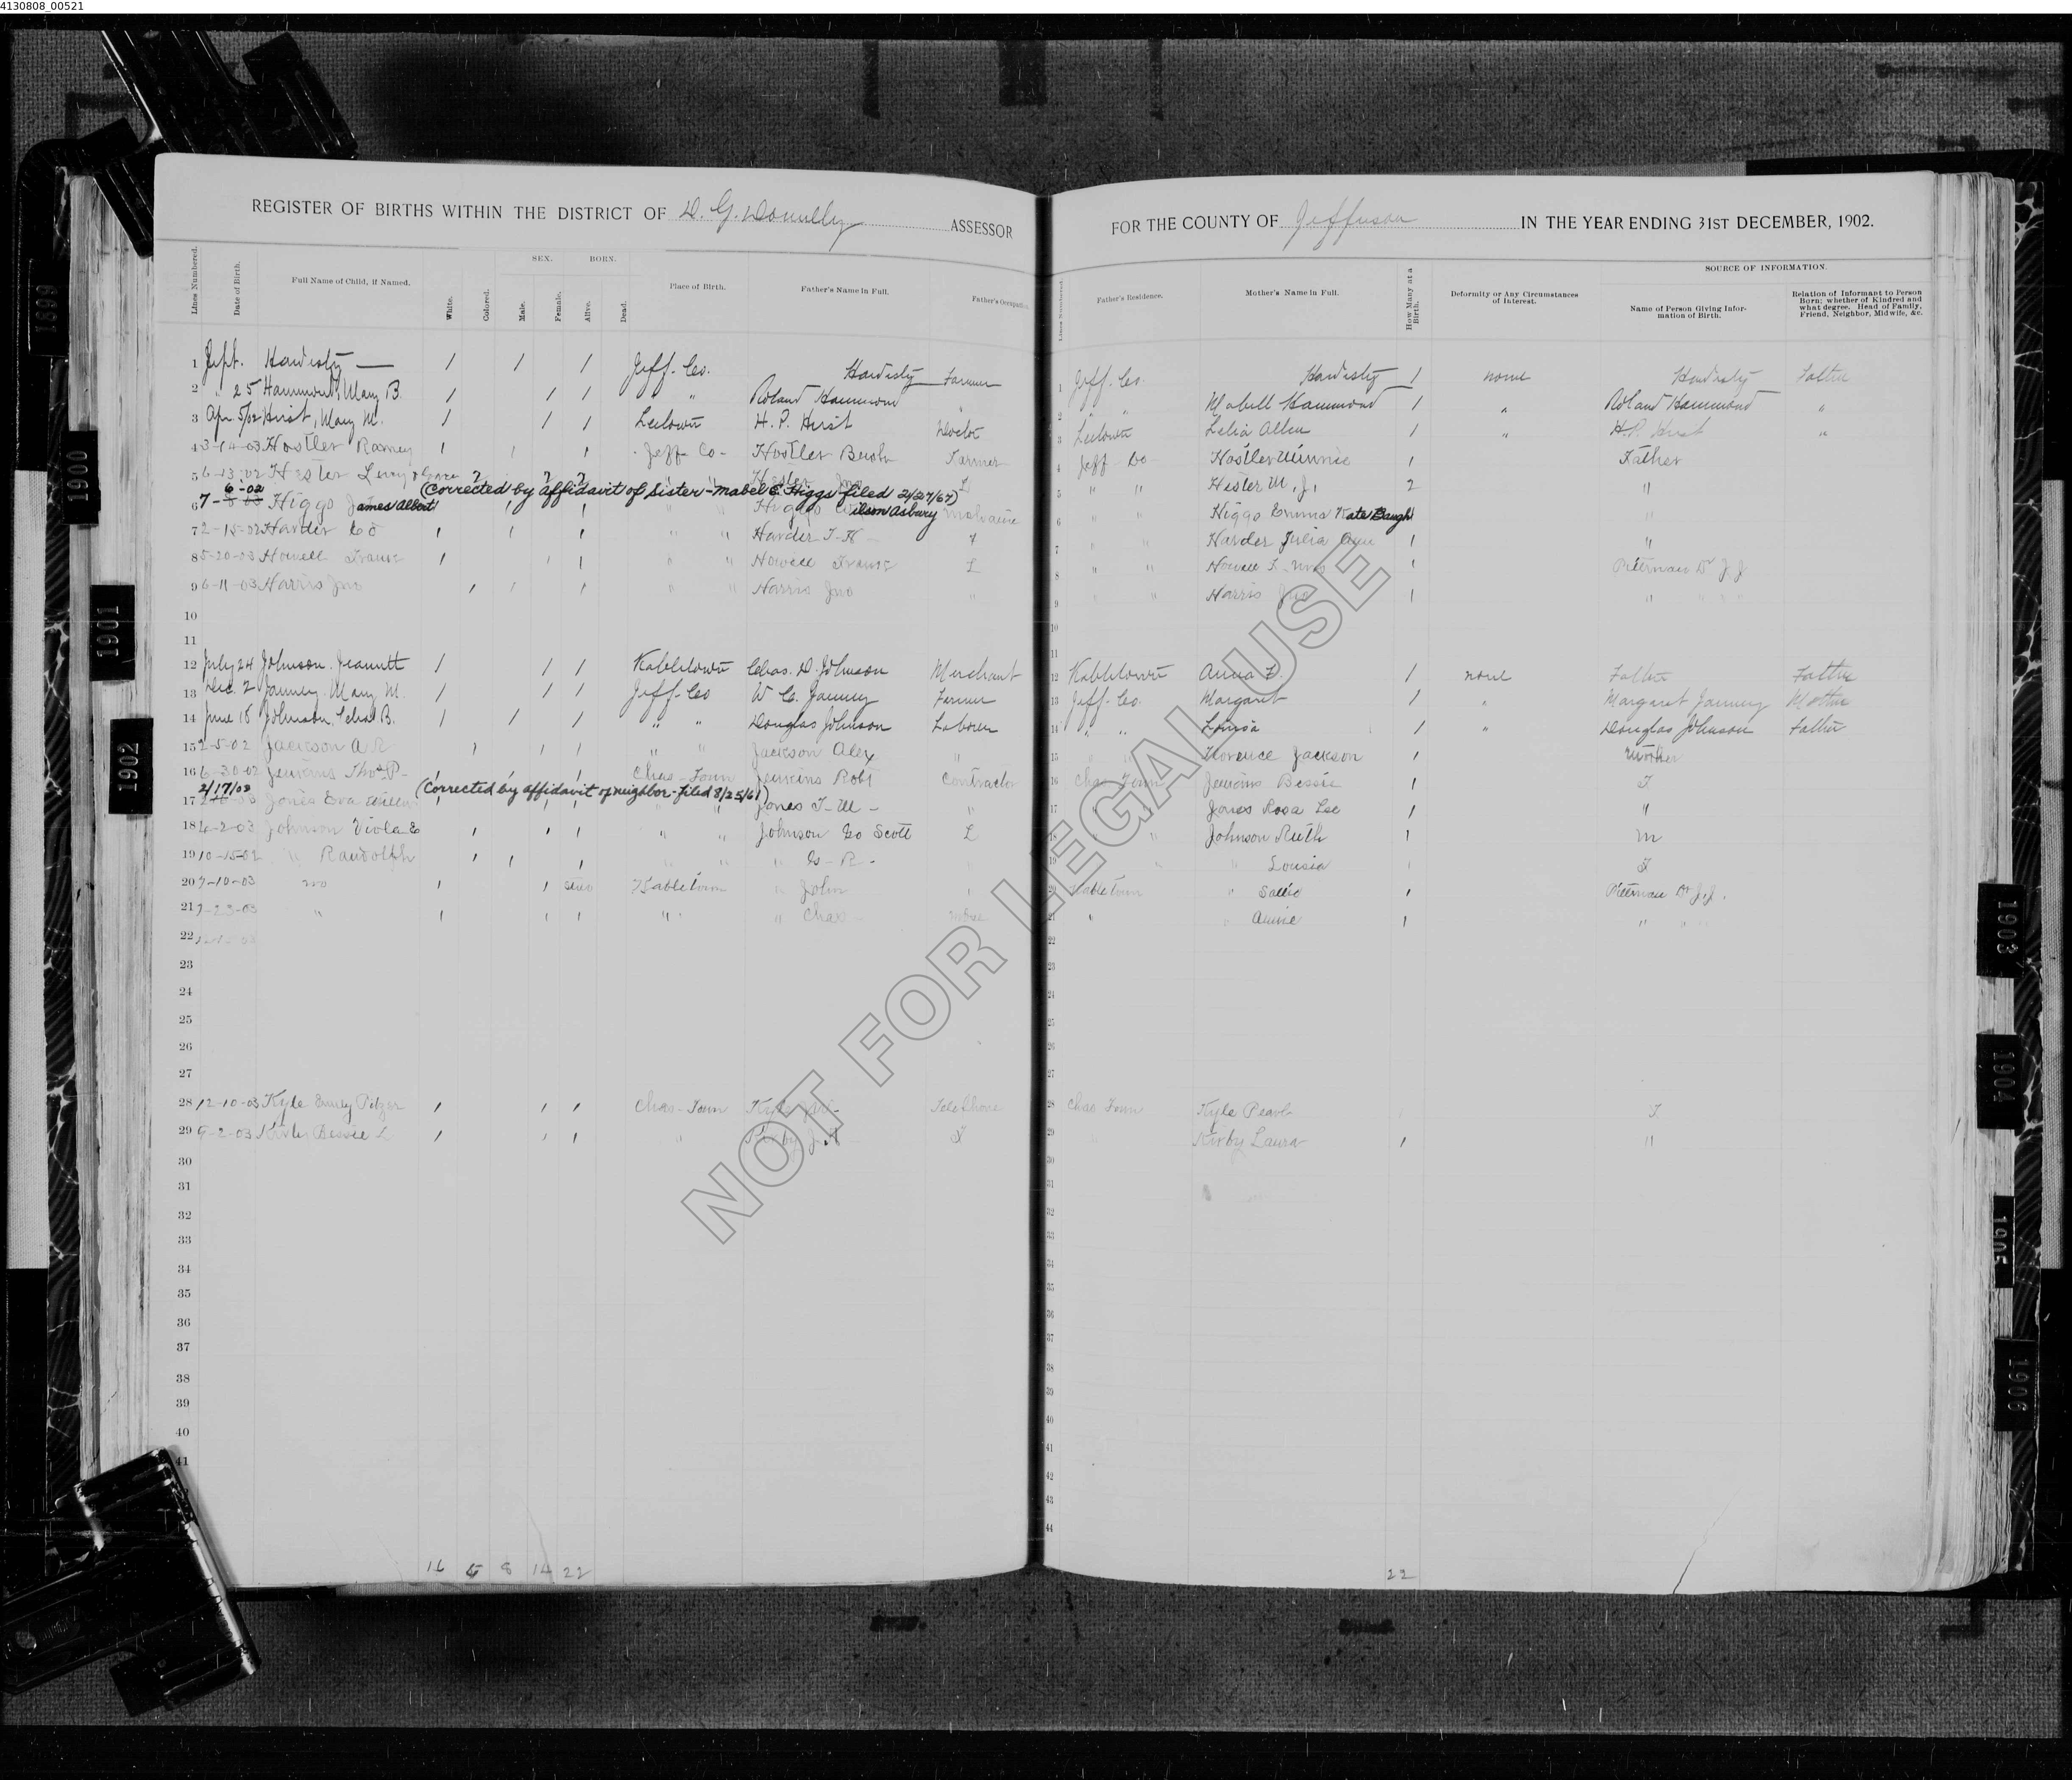 4130808_00521
REGISTER OF BIRTHS WITHIN THE DISTRICT OF D. G. Donnelly ASSESSOR
FOR THE COUNTY OF Jefferson IN THE YEAR ENDING 31ST DECEMBER, 1902.
Lines Numbered. Date of Birth. Full Name of Child, if Named. White. Colored. SEX. Male. Female. BORN. Alive. Dead. Place of Birth. Father's Name in Full. Father's Occupation.
Lines Numbered. Father's Residence. Mother's Name in Full. How Many at a Birth. Deformity or Any Circumstances of Interest. SOURCE OF INFORMATION. Name of Person Giving Information of Birth. Relation of Informant to Person Born; whether of Kindred and what degree. Head of Family, Friend, Neighbor, Midwife, &c.
1 Sept. Hardisty — / / / Jeff. Co. Hardisty Farmer 1 Jeff. Co. Hardisty 1 none Hardisty Father
2 " 25 Hammond, Mary B. / / / " " Roland Hammond " 2 " " Mabell Hammond 1 " Roland Hammond "
3 Apr. 5/02 Hirst, Mary M. / / / Leetown H. P. Hirst Doctor 3 Leetown Lelia Allen 1 " H. P. Hirst "
4 3-14-03 Hostler Ramey 1 1 1 Jeff Co - Hostler Farmer 4 Jeff Co - Hostler Minnie 1 Father
5 6-13-02 Hester Leroy & Grace 2 2 2 Hester Jno L 5 " " Hester M. J. 2 "
(Corrected by affidavit of Sister - Mabel E. Higgs filed 2/27/67)
6 7-6-02 Higgs James Albert 1 1 " " Higgs Wilson Asbury 6 " " Higgs Emma Kate Baugh 1 "
7 2-15-03 Harder Ed 1 1 1 " " Harder T-H - " 7 " " Harder Julia Ann 1 "
8 5-20-03 Howell 1 1 1 " " Howell L 8 " " Howell 1 Pitterman Dr J. J
9 6-11-03 Harris Jno 1 1 1 " " Harris Jno " 9 " " Harris Jno 1 " " " "
10
11
12 July 24 Johnson, Jeanutt / / / Kabletown Chas. D. Johnson Merchant 12 Kabletown Anna F. 1 none Father Father
13 Dec. 2 Janney, Mary M. / / / Jeff. Co W. C. Janney Farmer 13 Jeff. Co. Margaret 1 " Margaret Janney Mother
14 June 18 Johnson, B. / / / " " Douglas Johnson Laborer 14 " " Louisa 1 " Douglas Johnson Father
15 2-5-02 Jackson A R 1 1 1 " " Jackson Alex " 15 " " Florence Jackson 1 Mother
16 6-30-02 Jenkins Thos P- 1 1 1 Chas-Town Jenkins Robt Contractor 16 Chas Town Jenkins Bessie 1 F
(Corrected by affidavit of neighbor - filed 8/25/61)
17 2/17/03 Jones Eva 1 1 1 " " Jones T-M - " 17 " " Jones Rosa Lee 1 "
18 4-2-03 Johnson Viola E 1 1 1 " " Johnson Geo Scott L 18 " " Johnson Ruth 1 m
19 10-15-02 " Randolph 1 1 1 " " " G-R- " 19 " " Louisa 1 F
20 7-10-03 no 1 1 Kabletown " John " 20 Kabletown " Sallie 1 Pitterman Dr J. J.
21 7-23-03 " 1 1 1 " " " Chas - 21 " " Annie 1 " " "
22
23
24
25
26
27
28 12-10-03 Kyle Emily Pitzer 1 1 1 Chas-Town Kyle Telephone 28 Chas Town Kyle Pearl 1 F
29 9-2-03 Kirby Bessie L 1 1 1 " Kirby J. H 29 " Kirby Laura 1 "
30
31
32
33
34
35
36
37
38
39
40
41
42
43
44
16 6 8 14 22
22
NOT FOR LEGAL USE
1899
1900
1901
1902
1903
1904
1905
1906